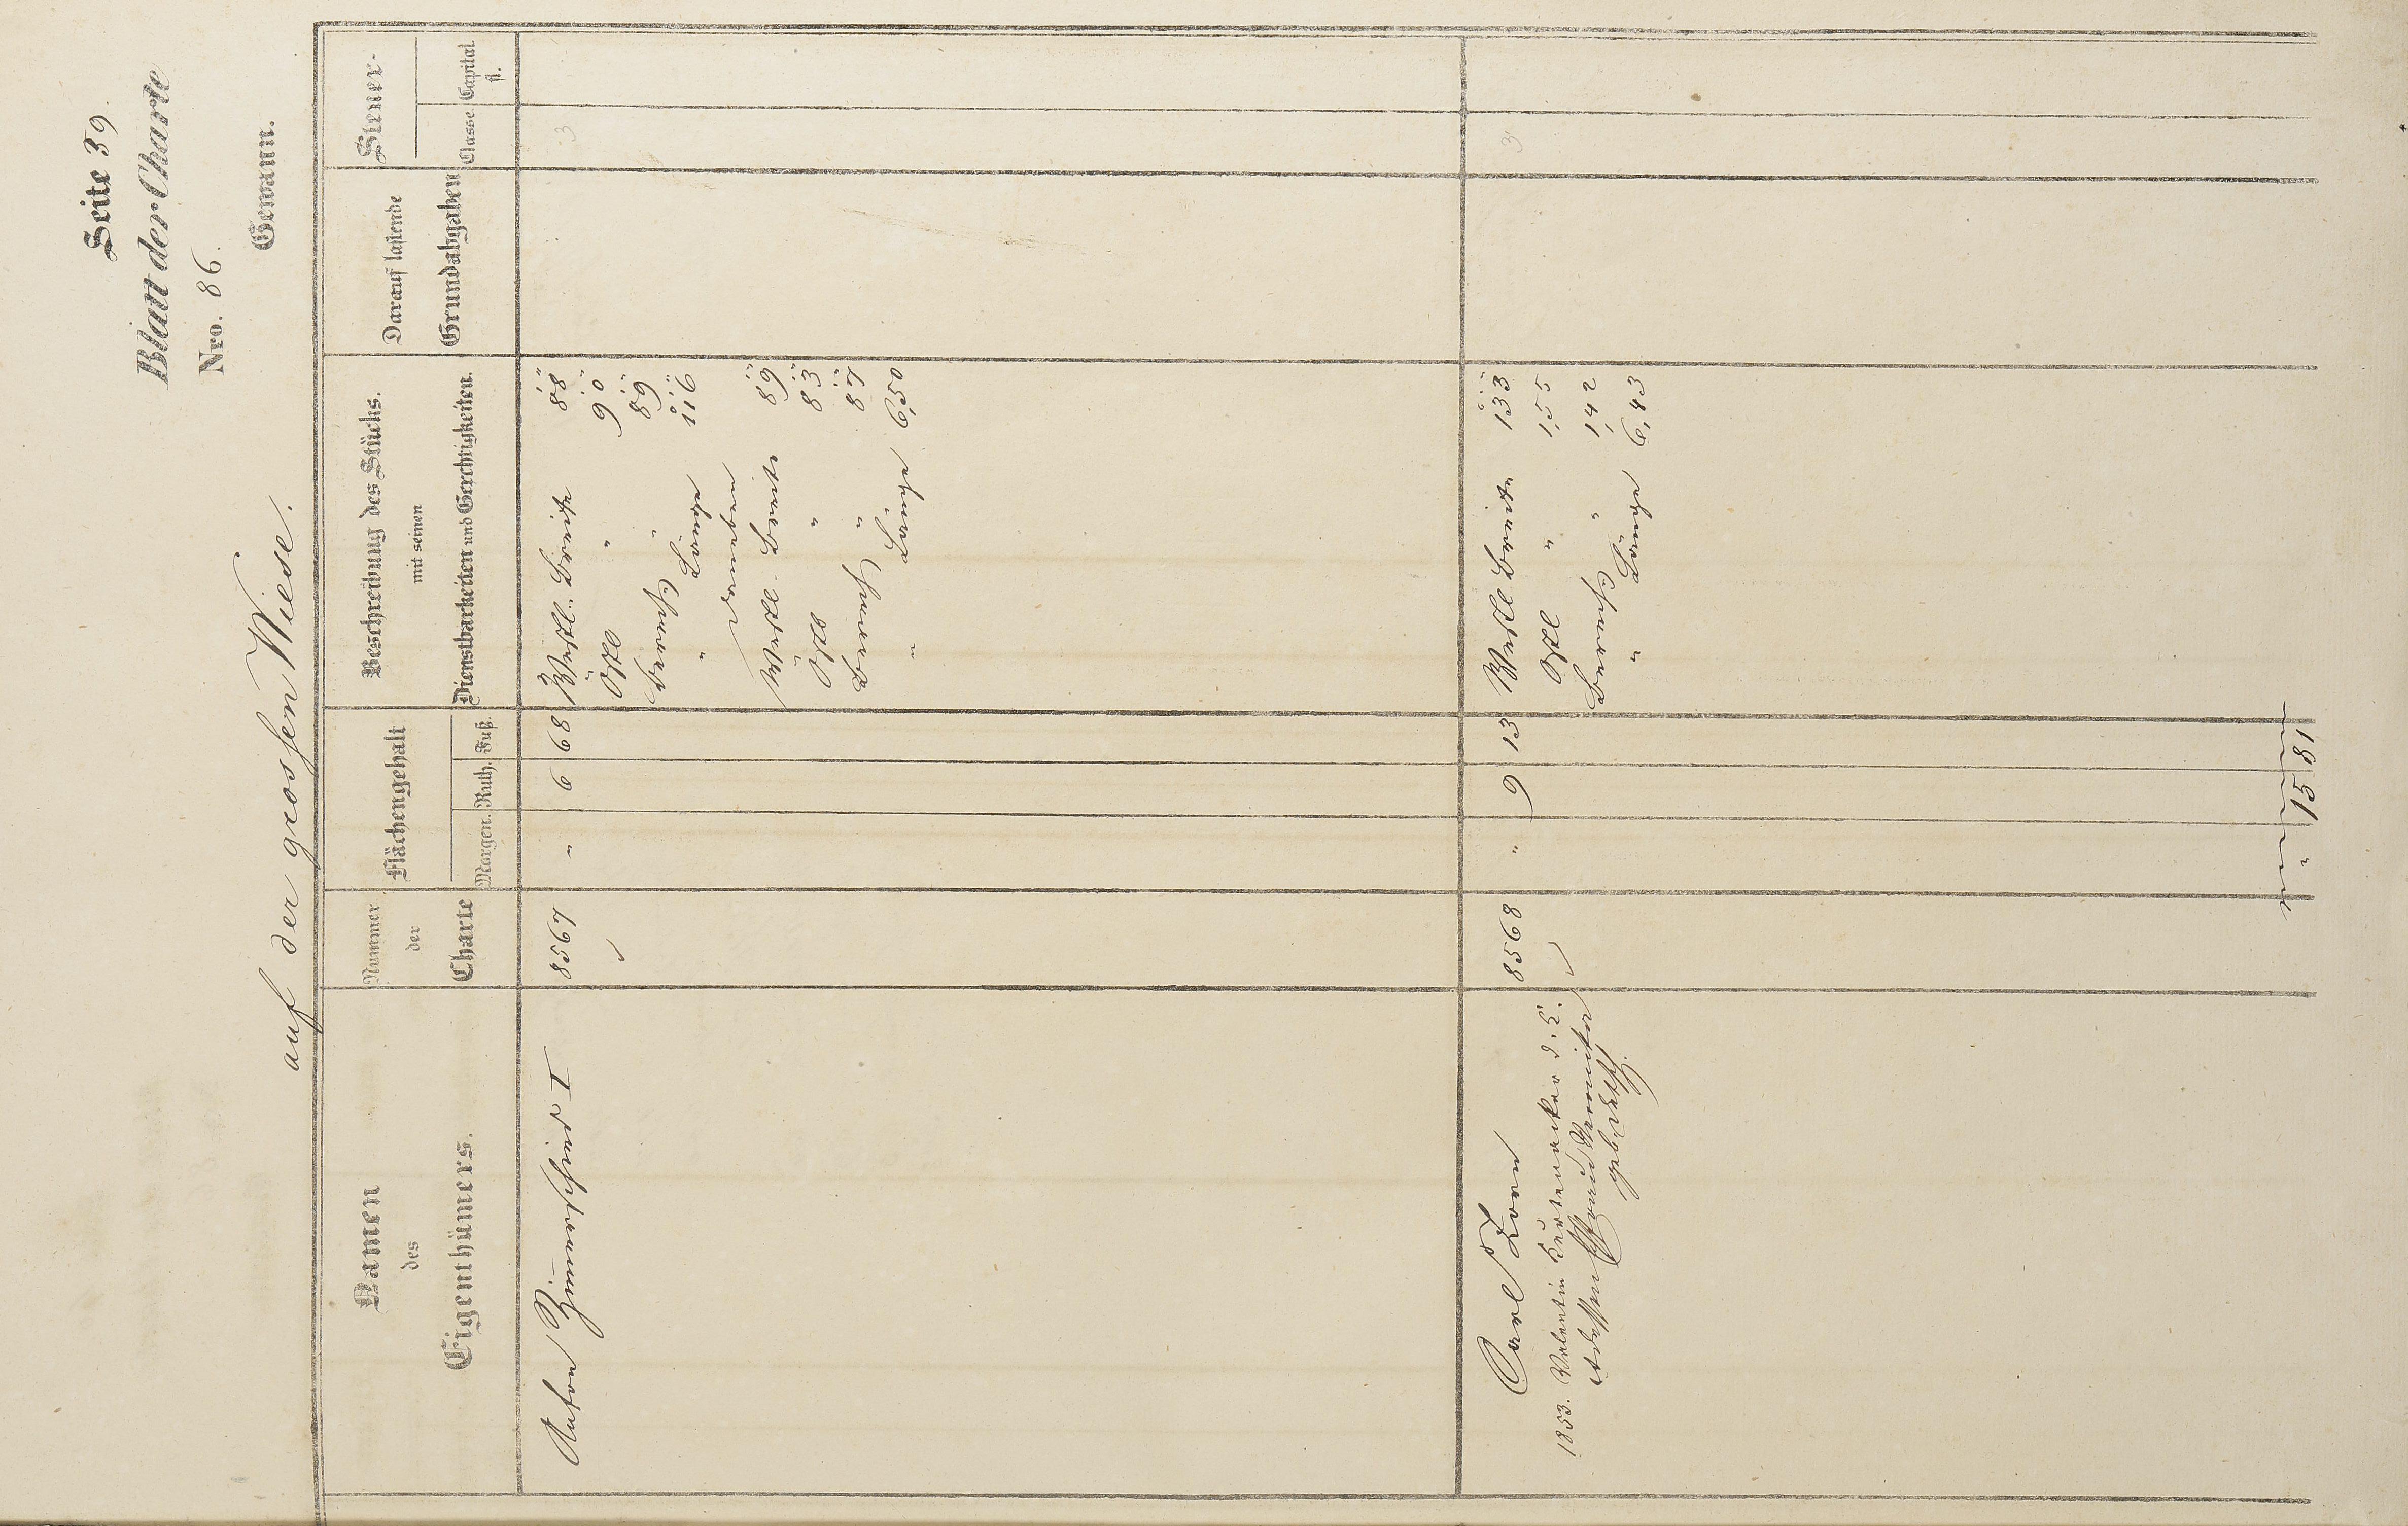 Seite 39.
Blatt der Charte
Nro. 86.
auf der grossen Wiese.
Gewann.
Namen
des
Eigenthümers.
Nummer
der
Charte
Flächengehalt
Morgen. Ruth. Fuß.
Beschreibung des Stücks.
mit seinen
Dienstbarkeiten und Gerechtigkeiten.
Darauf lastende
Grundabgaben
Steuer-
Classe. Capital
fl.
Anton Zimmerschied I
8567
" 6 68
Westl. Breite 8'8"
Östl " 9'0"
Berech " 8'9"
" Länge 11°6'
daneben
Westl. Breite 8'9"
Östl " 8'3"
Berech " 8'7"
" Länge 6,50
3
Carl Zorn
1853. Valentin
dessen
geb.
8568
" 9 13
Westl Breite 133
Östl " 1,55
Berech " 1,42
" Länge 6,43
3
" 15 81